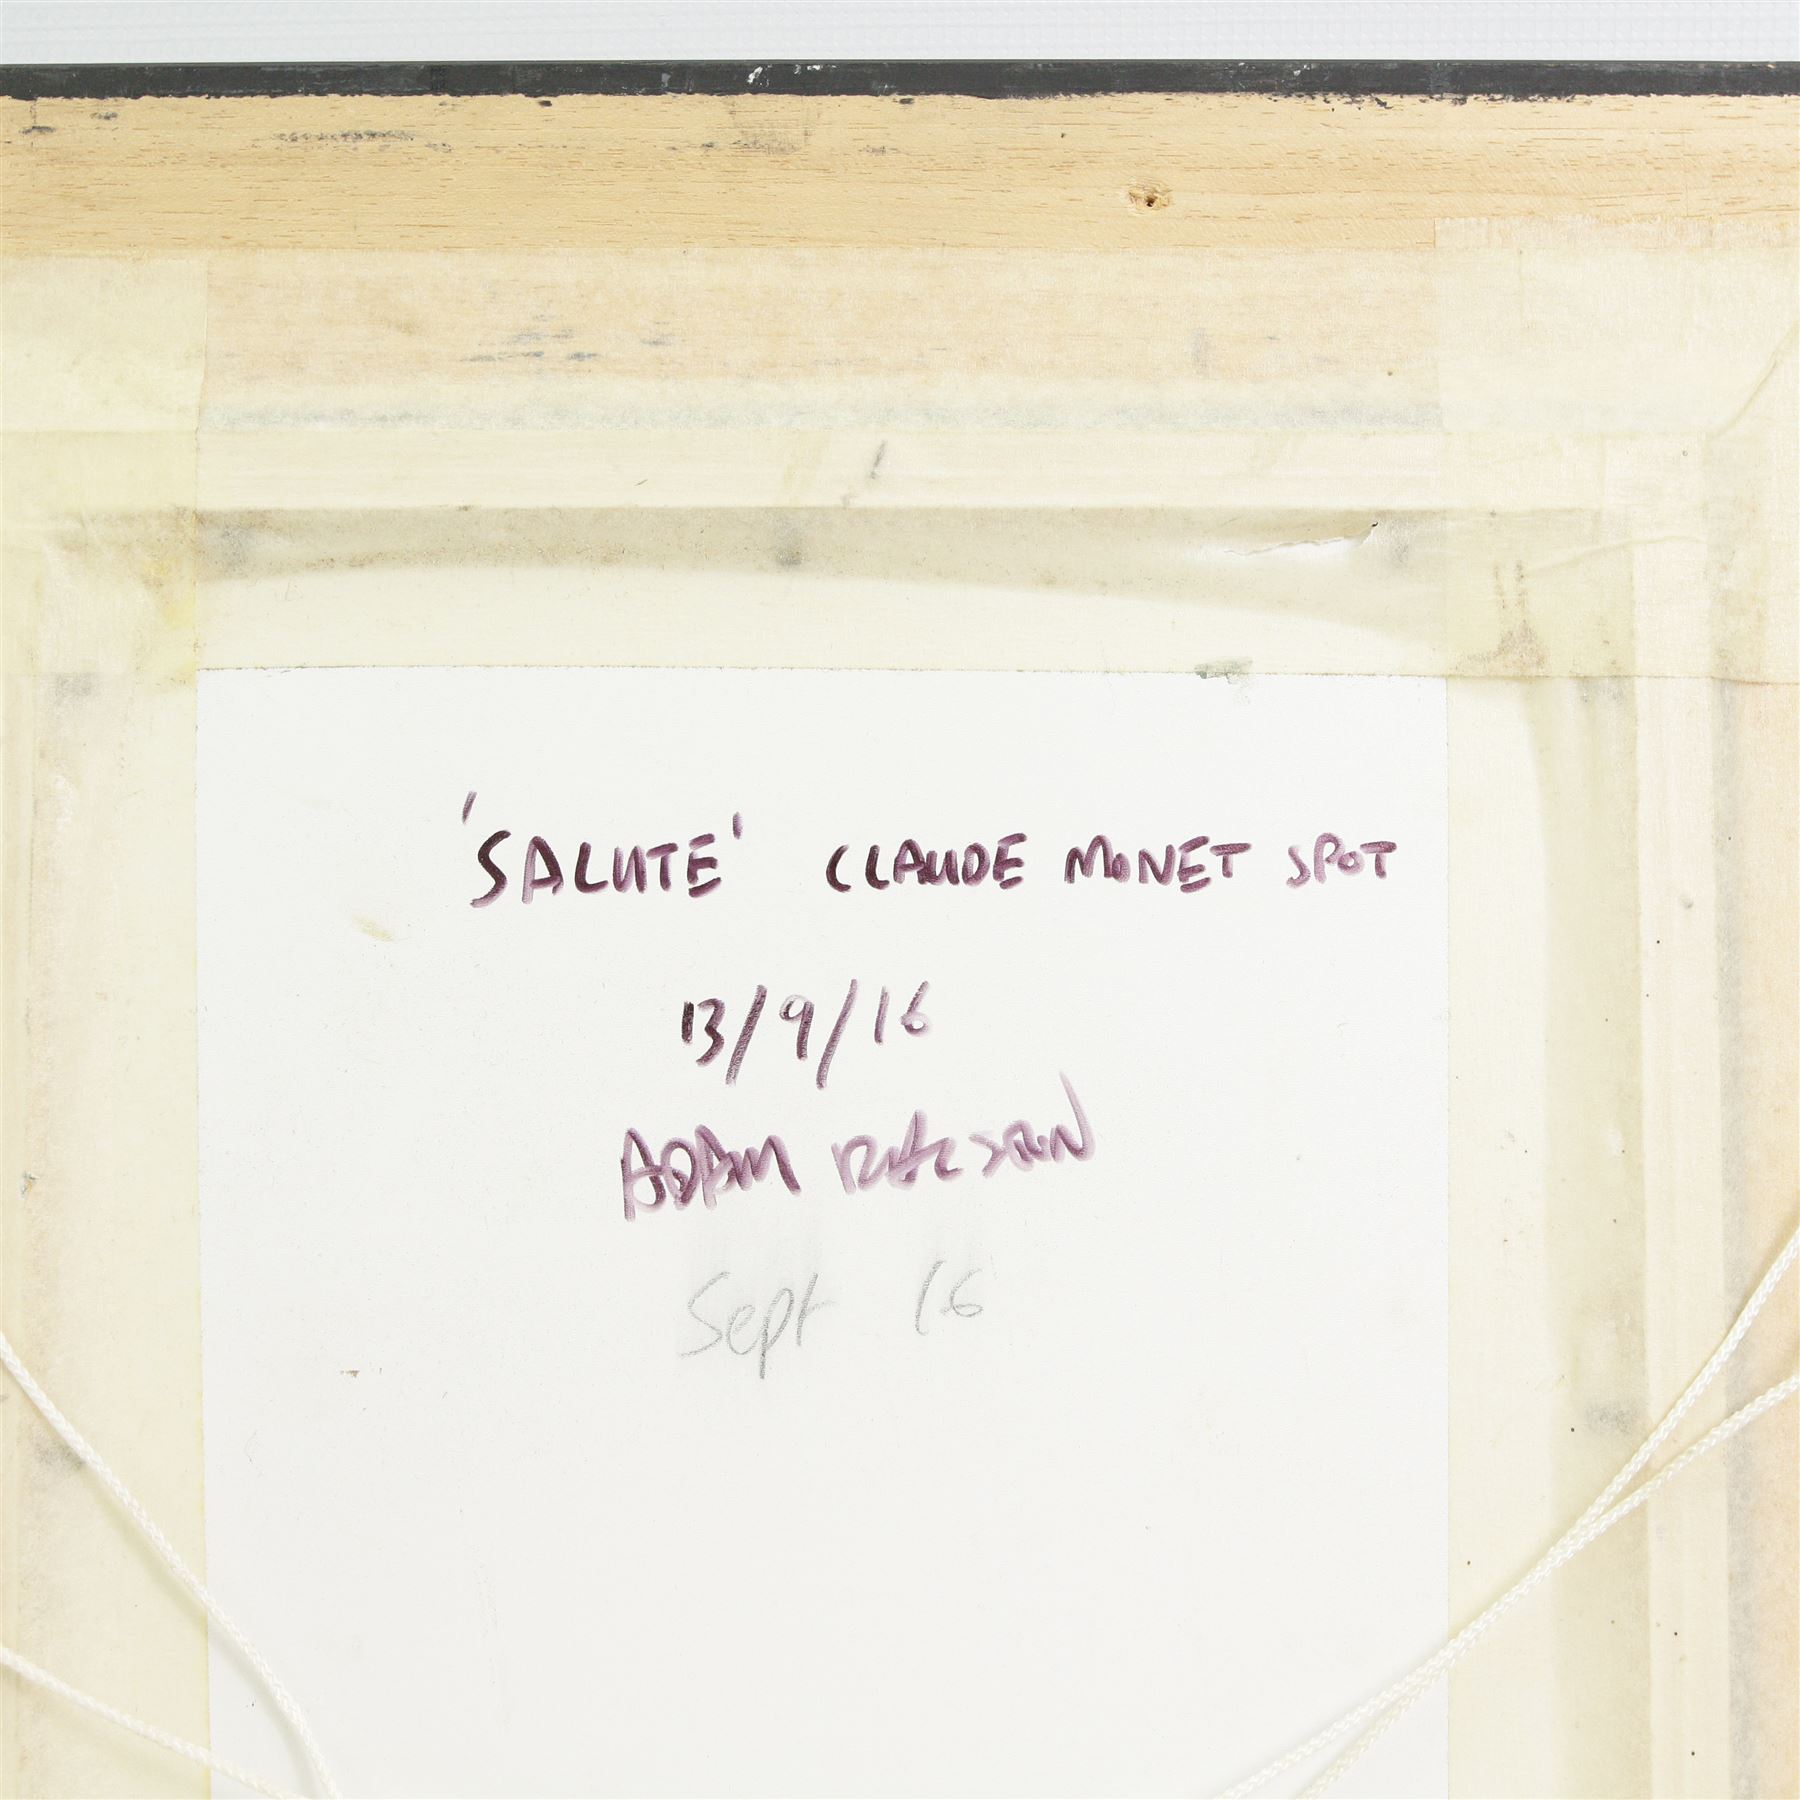 'SALUTE' CLAUDE MONET SPOT
13/9/16
ADAM
Sept 16